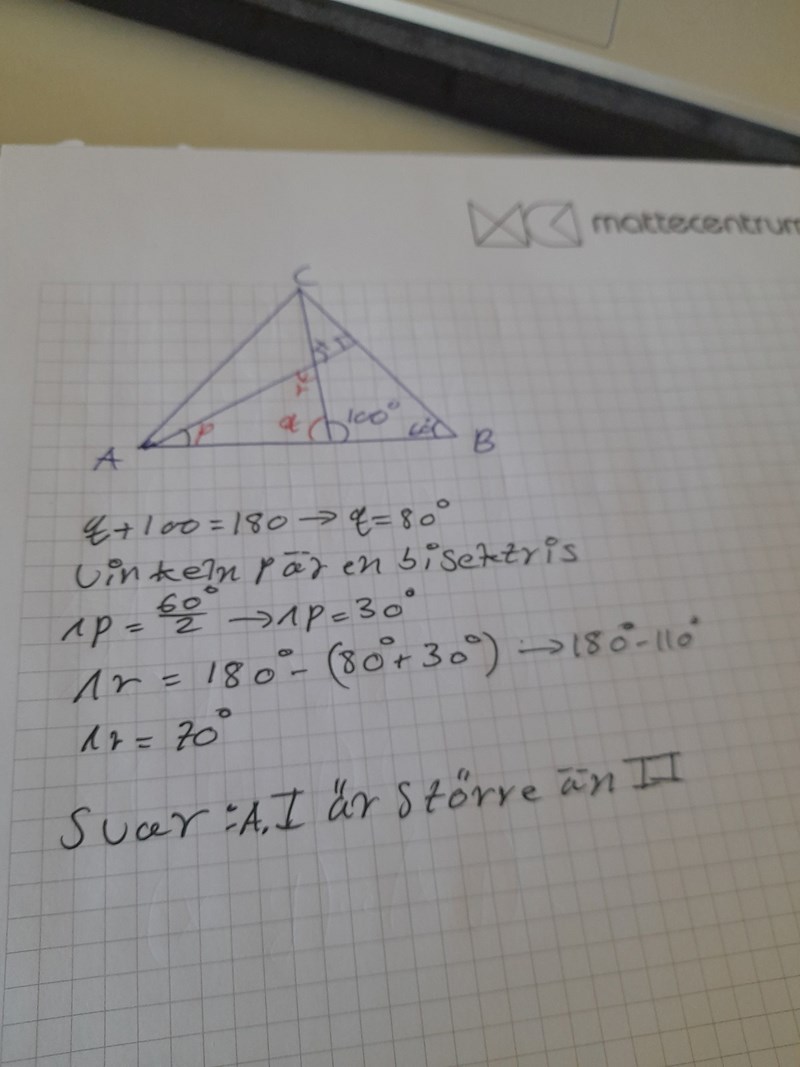 mattecentrum
C
r
q
100°
P
A
B
q+100=180→q=80°
Vinkeln p är en bisektris
ΛP = 60°/2 →ΛP=30°
Λr = 180°-(80°+30°) →180°-110°
Λr = 70°
Svar: A. I är större än II